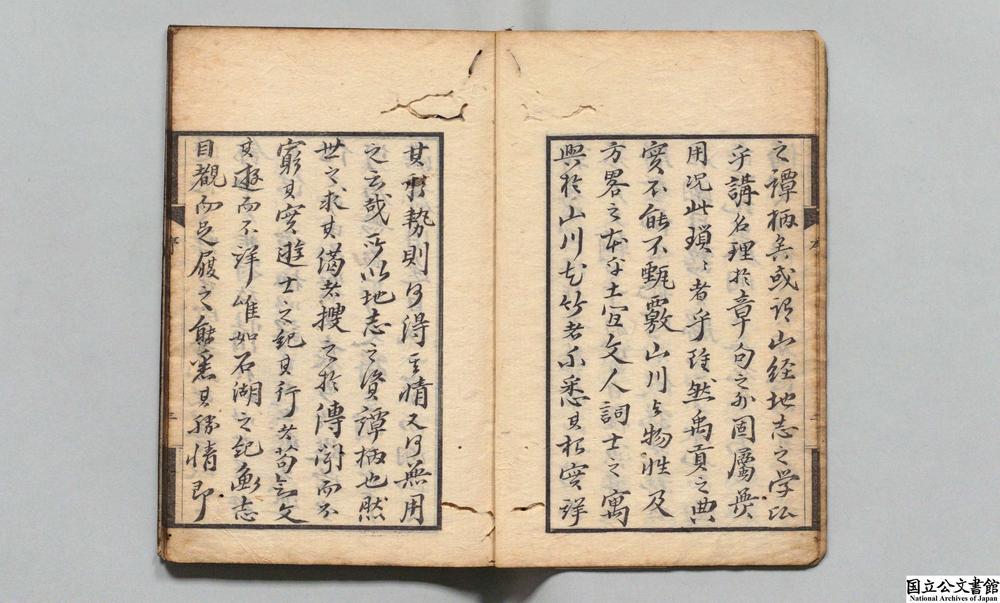 之譚柄矣或謂山経地志之学
乎講名理於章句之外固屬無
用况此瑣〻者乎雖然禹貢之典
實不能不甄敷山川与物性及
方畧之本乎土宜文人詞士之寓
興於山川花竹者亦悉其根實詳
其形勢則何得其情又何無用
之云哉所以地志之資譚柄也然
世之求其備者搜之於傳聞而不
窮其實遊士之紀其行者苟文
其遊而不詳唯如石湖之紀志
目覩而足履之能悉其勝情即
序
三
国立公文書館
National Archives of Japan